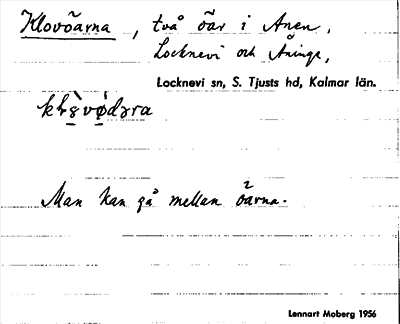 Klovöarna, två öar i Anen,
Locknevi och Åninge,
Locknevi sn, S. Tjusts hd, Kalmar län.
Man kan gå mellan öarna.
Lennart Moberg 1956